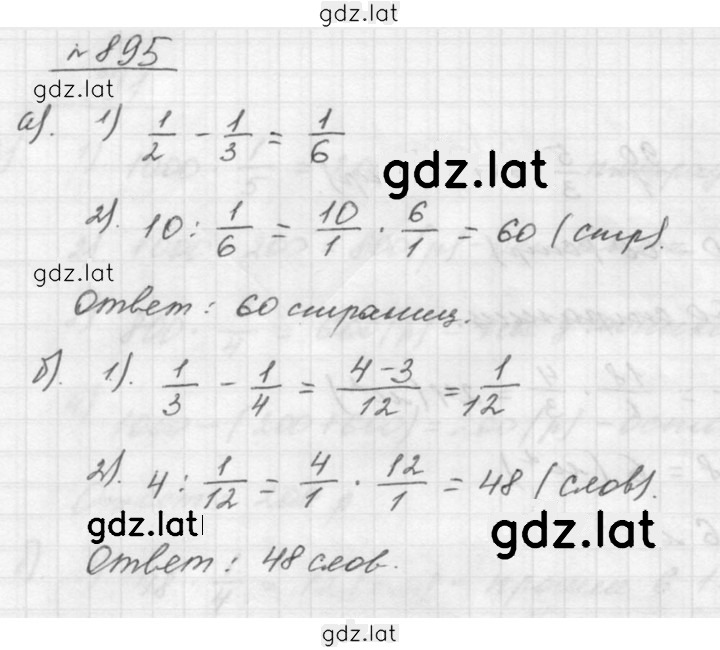 gdz.lat
№ 895
gdz.lat
а). 1) 1/2 - 1/3 = 1/6
gdz.lat
2). 10 : 1/6 = 10/1 · 6/1 = 60 (стр).
gdz.lat
Ответ: 60 страниц.
б). 1). 1/3 - 1/4 = 4-3/12 = 1/12
2). 4 : 1/12 = 4/1 · 12/1 = 48 (слов).
gdz.lat
gdz.lat
Ответ: 48 слов.
gdz.lat